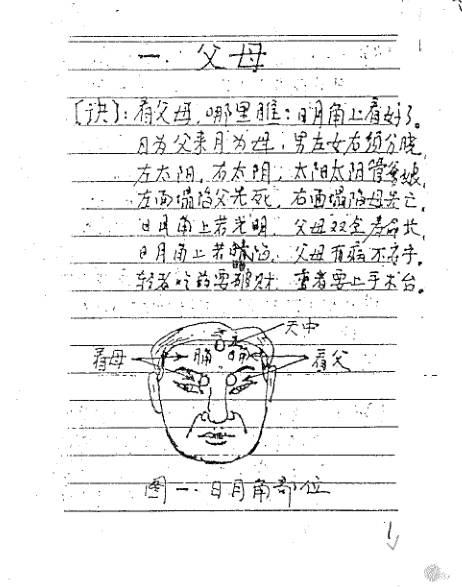 一. 父母
[诀]: 看父母,哪里瞧:日月角上看好了。
日为父来月为母,男左女右须分晓,
左太阳,右太阴;太阳太阴管爹娘,
左面塌陷父先死,右面塌陷母先亡。
日月角上若光明,父母双全寿命长,
日月角上若暗陷,父母有病不离手。
轻者吃药要破财,重者要上手术台。
天中
看母 角 角 看父
图一.日月角部位
1